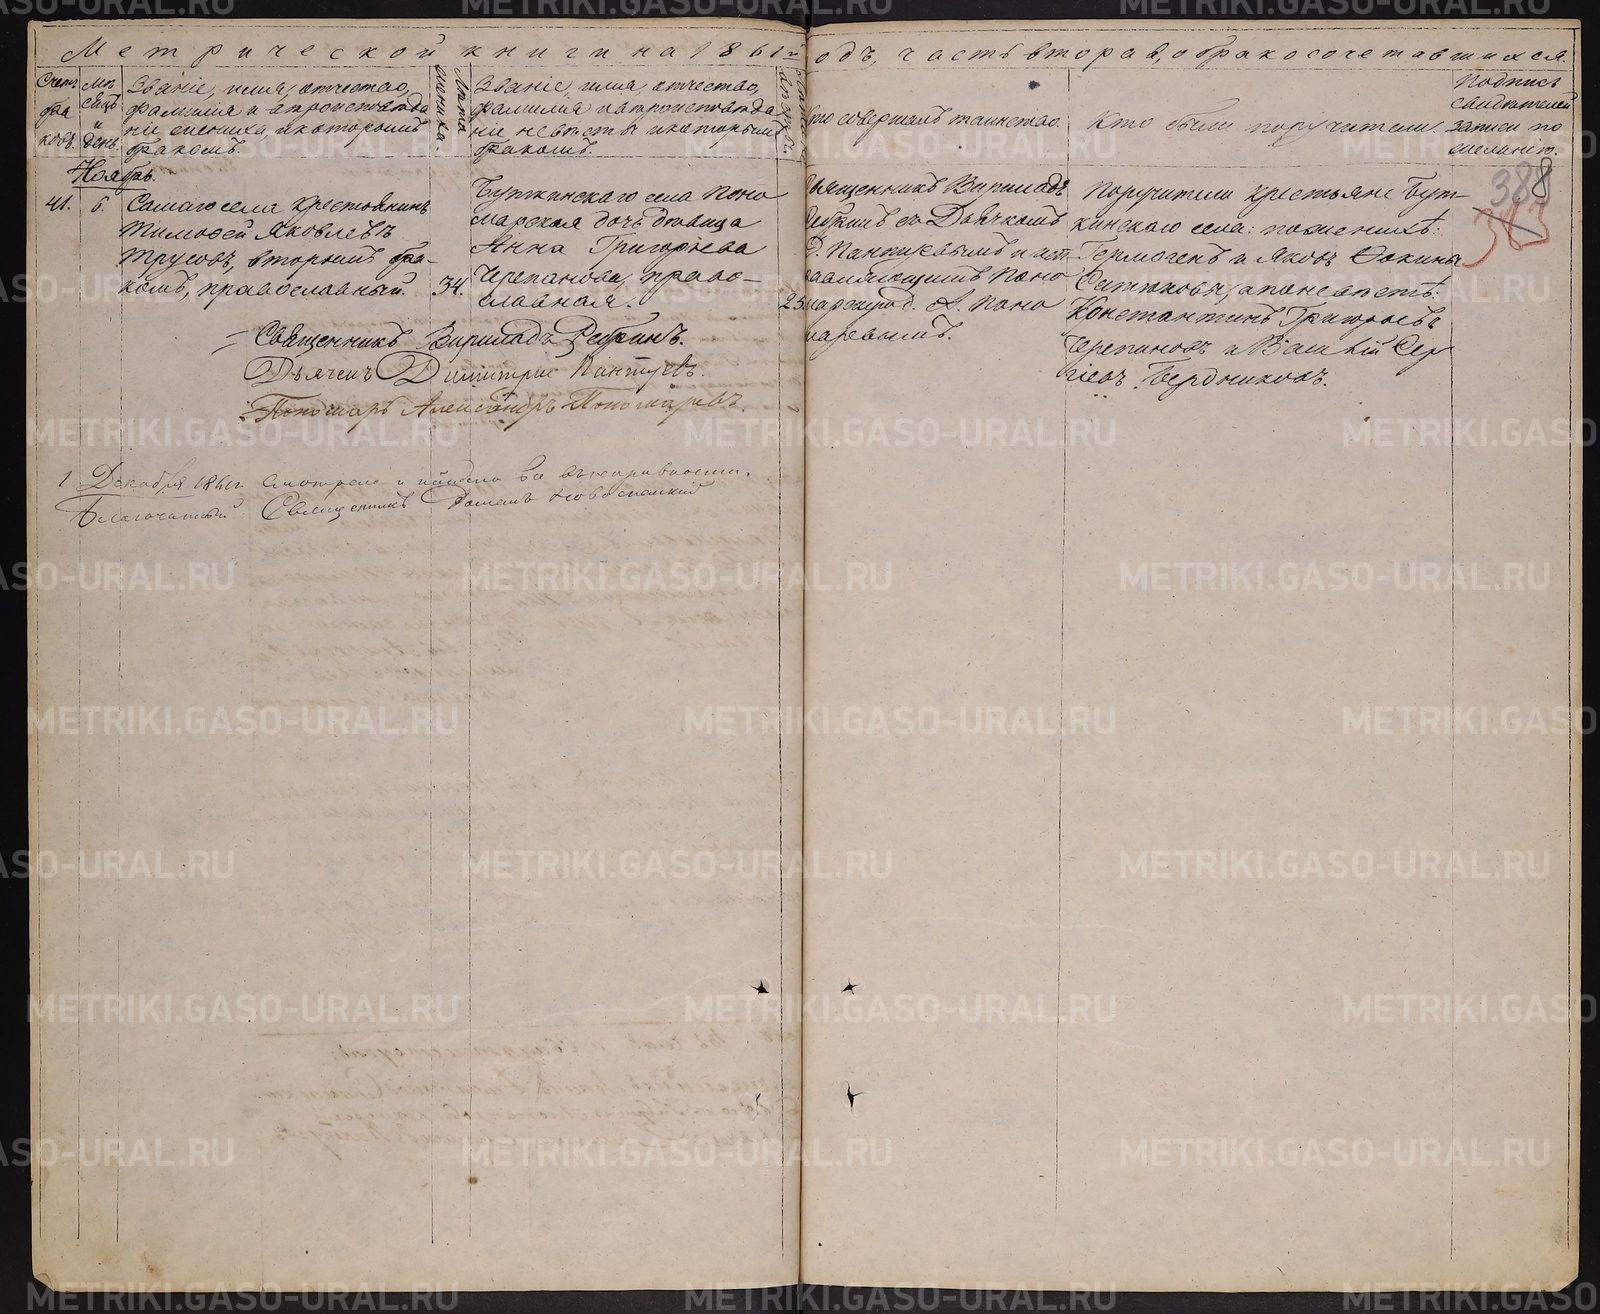 Метрической книги на 1861й годъ, часть вторая, о бракосочетавшихся.
Счетъ браковъ.
Мѣсяцъ и день.
Званіе, имя, отчество,
фамилія и
жениха и которымъ
бракомъ.
Лѣта жениха.
Званіе, имя, отчество,
фамилія
невѣсты и которымъ
бракомъ.
Кто совершалъ таинство.
Кто были поручители.
Подпись
свидѣтелей
записи по
желанію.
Ноябрь.
388
383
41.
6.
Самаго села крестьянинъ
Тимофей Яковлевъ
Трусовъ, вторымъ бра-
комъ, православный.
34.
Буткинскаго села поно
марская дочь дѣвица
Анна Григорьева
Черепанова, право-
славная.
25
Священникъ
Ребринъ съ Дьячкомъ
Д. Пантуевымъ и
поно
А. Поно
маревымъ.
Поручители крестьяне Бут-
кинскаго села: по женихѣ:
Гермогенъ и Яковъ Фокины
а по невѣстѣ:
Константинъ Григорьевъ
Черепановъ и Василій Сер
гіевъ Бердниковъ.
Священникъ
Дьячекъ Димитрій Пантуевъ.
Пономарь Александръ Пономаревъ.
1 Декабря 1861 г. смотрелъ и
Благочинный Священникъ
METRIKI.GASO-URAL.RU